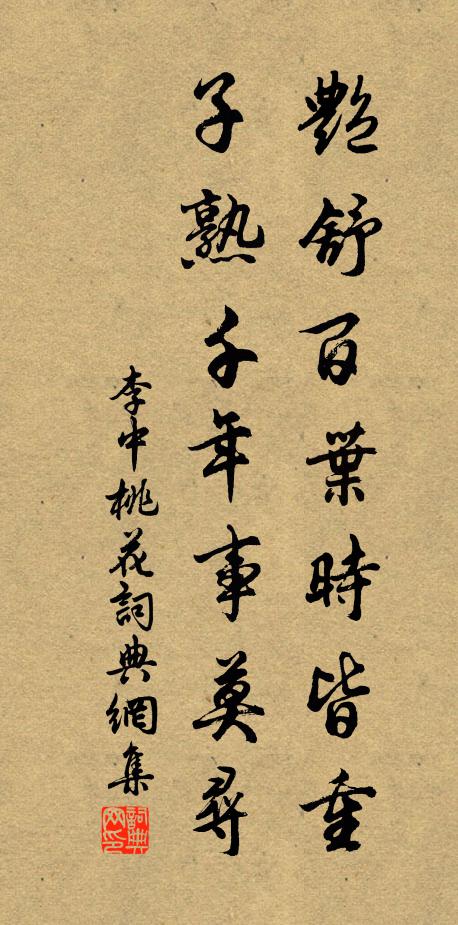 艷舒百葉時皆重
子熟千年事莫尋
李中桃花詞典網集
詞典網印